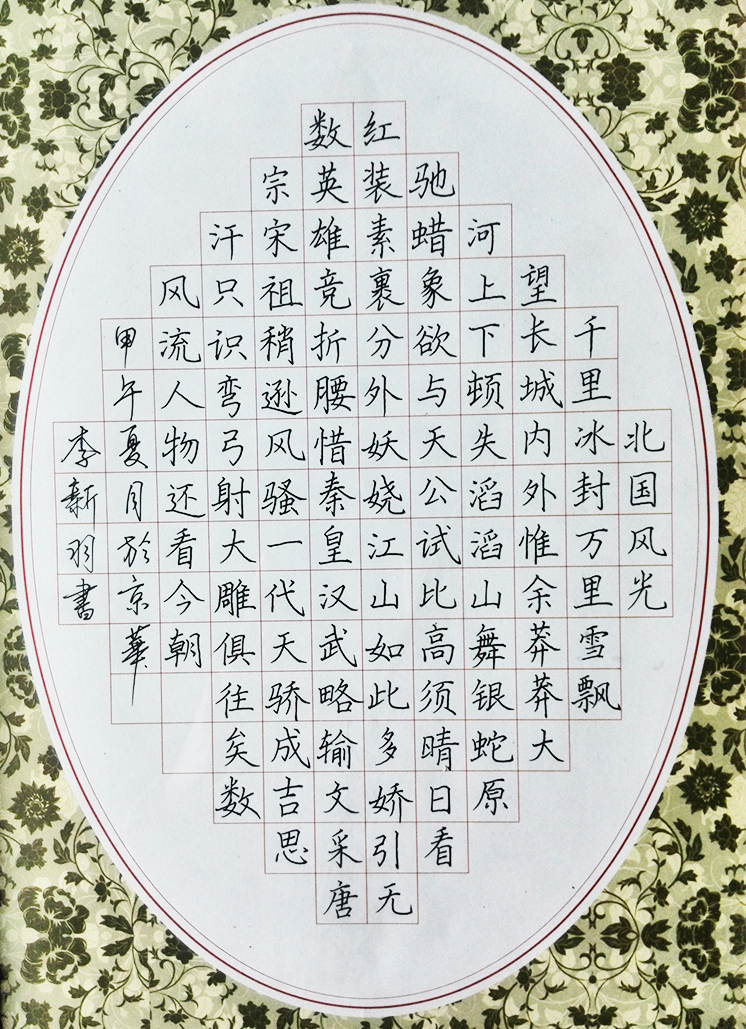 北国风光
千里冰封万里雪飘
望长城内外惟余莽莽大
河上下顿失滔滔山舞银蛇原
驰蜡象欲与天公试比高须晴日看
红装素裹分外妖娆江山如此多娇引无
数英雄竞折腰惜秦皇汉武略输文采唐
宗宋祖稍逊风骚一代天骄成吉思
汗只识弯弓射大雕俱往矣数
风流人物还看今朝
甲午夏月於京華
李新羽書